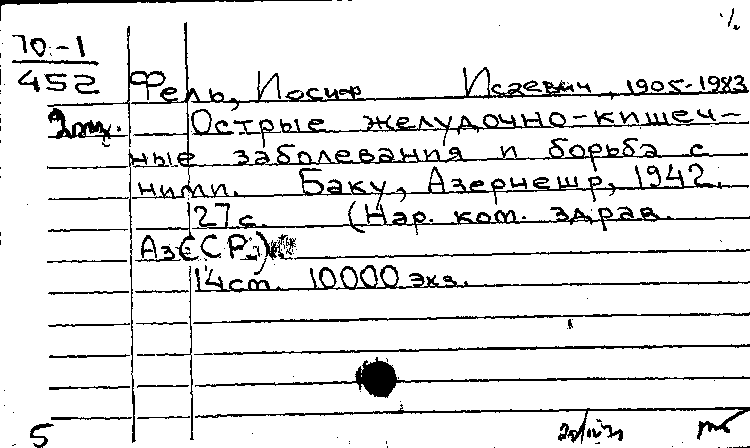 70-1
452
Фель, Иосиф Исаевич, 1905-1983
2 экз.
Острые желудочно-кишеч-
ные заболевания и борьба с
ними. Баку, Азернешр, 1942.
27 с. (Нар. ком. здрав.
АзССР.)
14 см. 10000 экз.
5